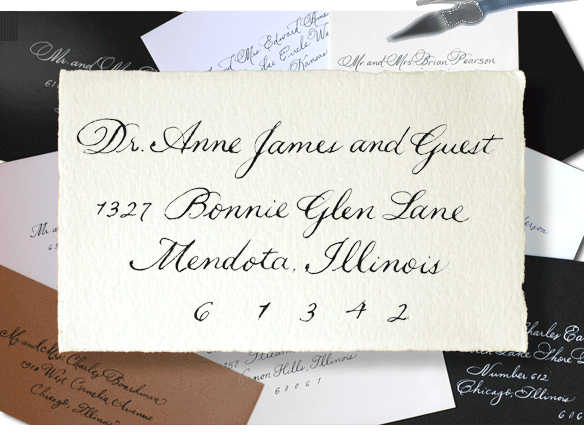 Dr. Anne James and Guest
1327 Bonnie Glen Lane
Mendota, Illinois
6 1 3 4 2
Mr. and Mrs. Edward
Circle
Kansas
Mr. and Mrs. Brian Pearson
Mr. and
61
Mr. and Mrs. Charles Boardman
1910 West Cornelia Avenue
Chicago, Illinois
Hills, Illinois
60061
Charles
Lake Shore
Number 612
Chicago, Illinois
606